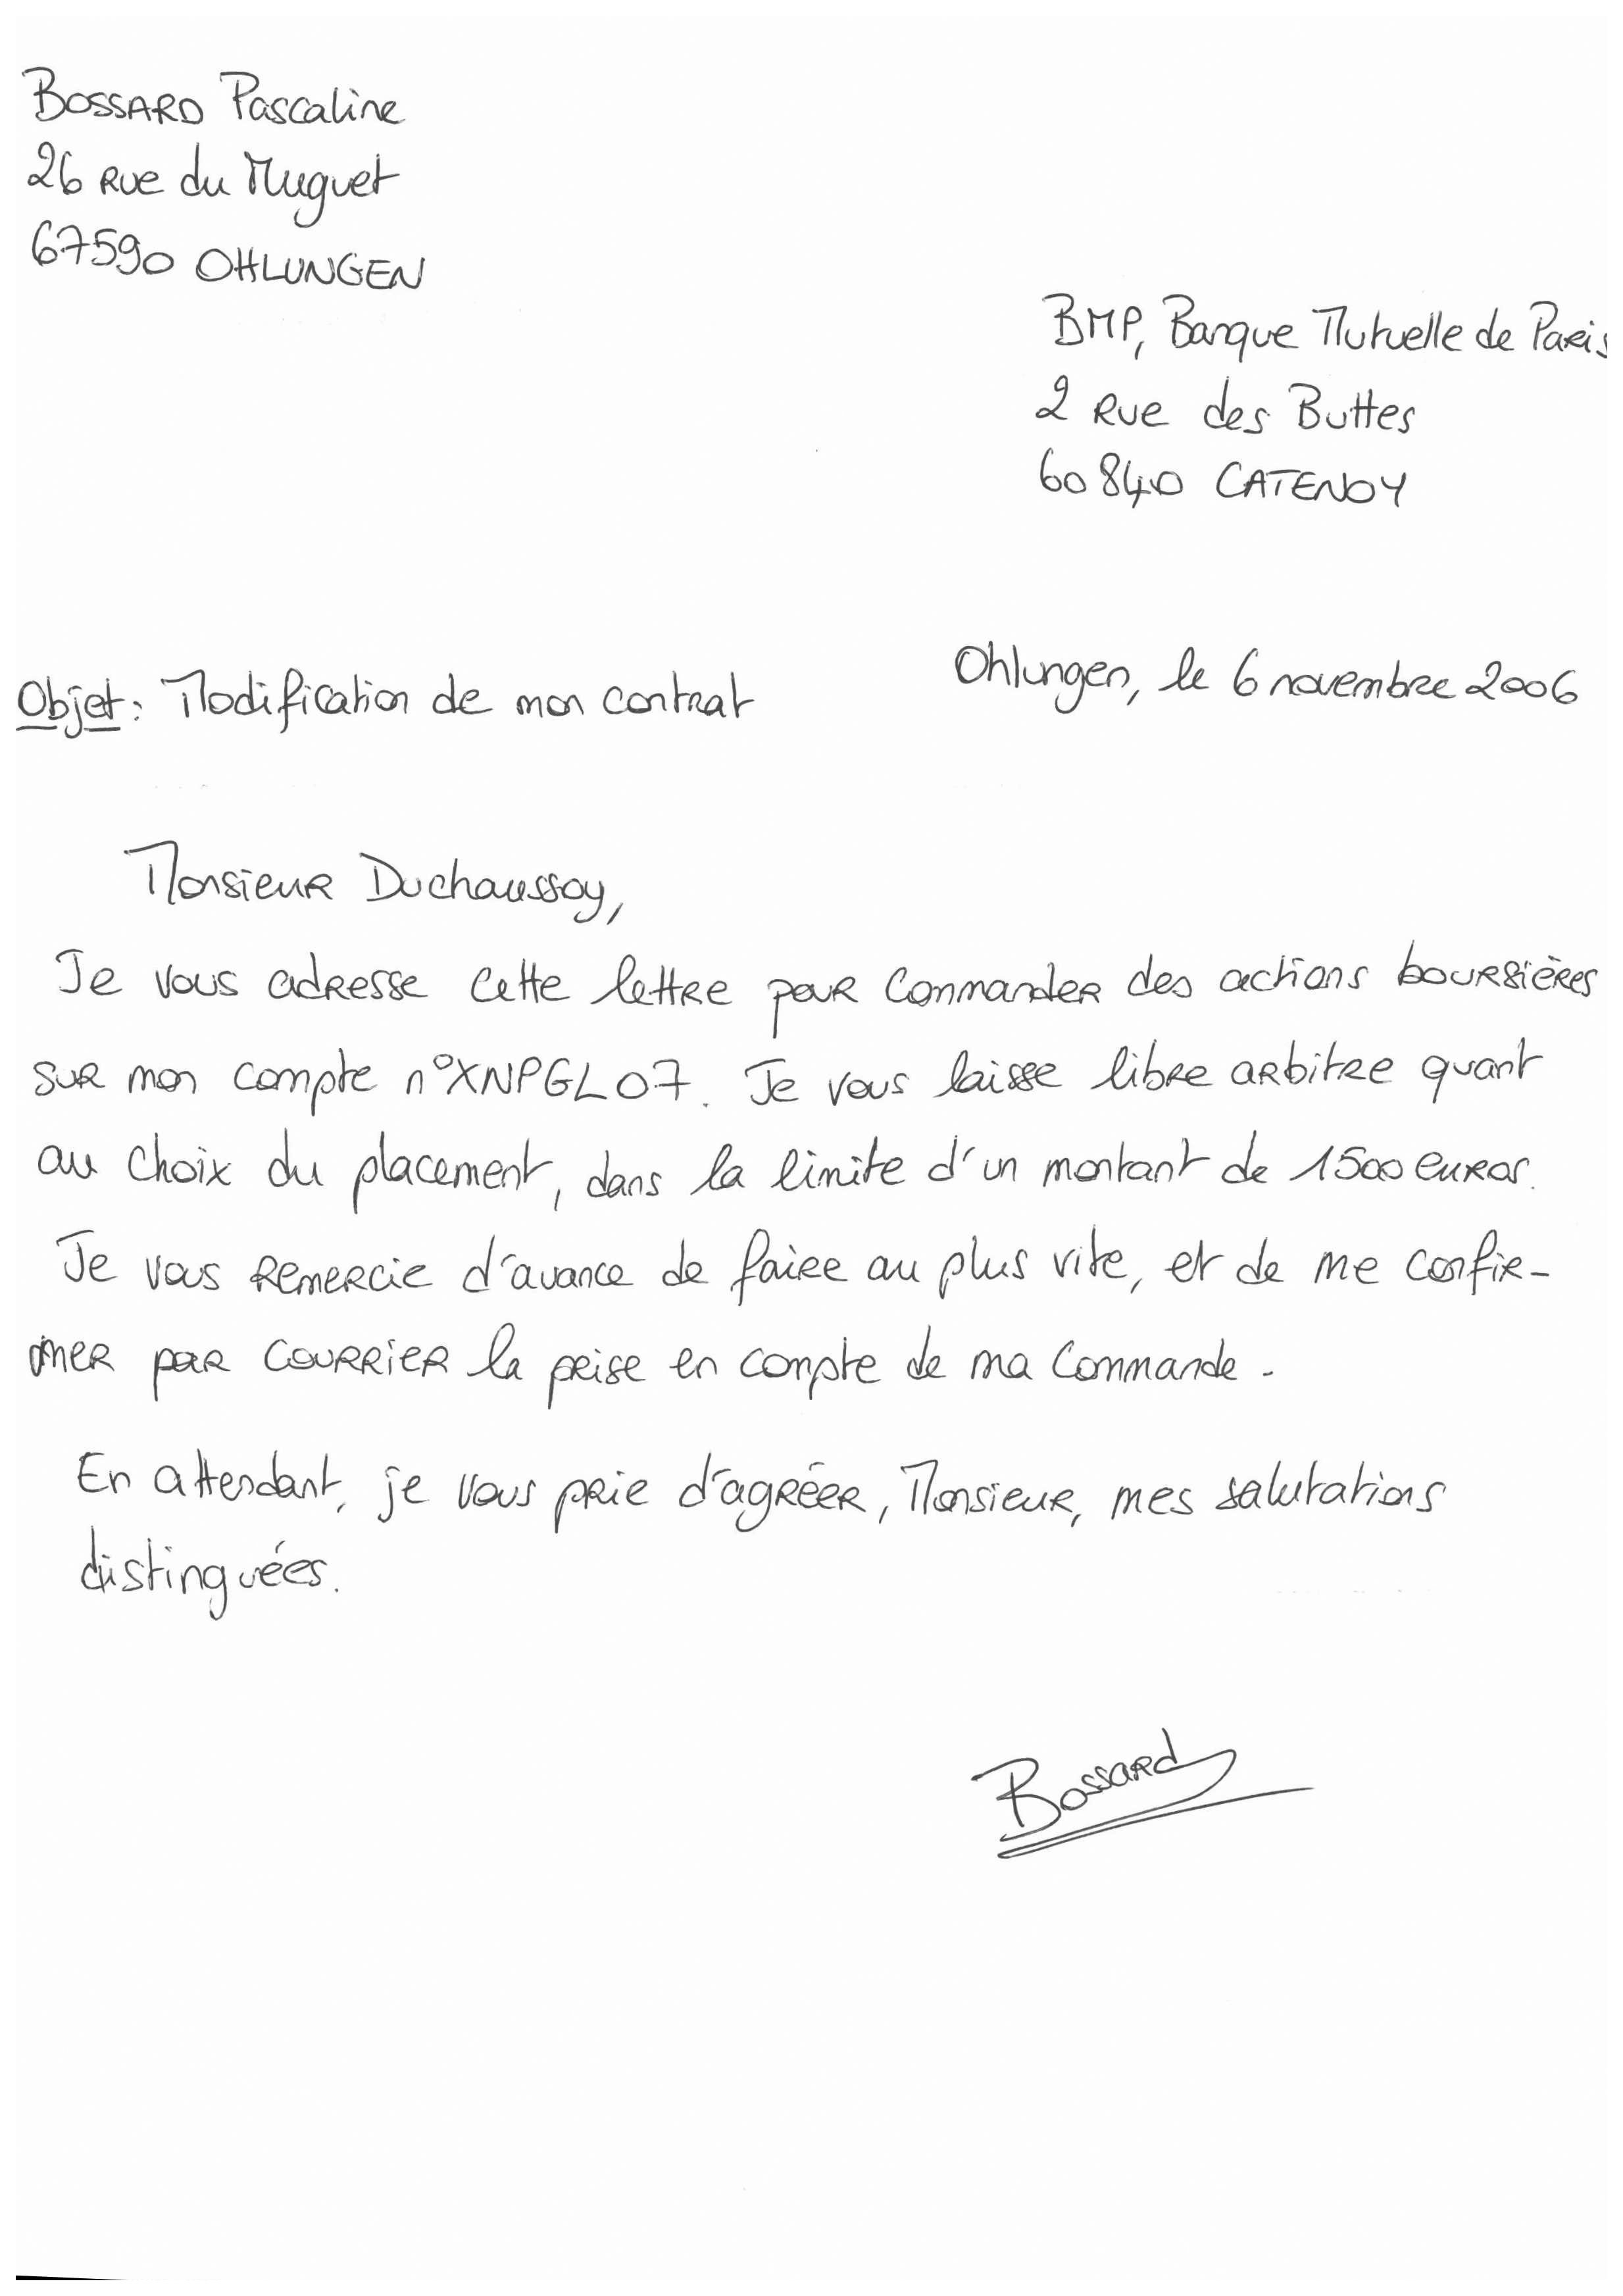 BOSSARD Pascaline
26 Rue du Muguet
67590 OHLUNGEN
BMP, Banque Mutuelle de Paris
2 Rue des Buttes
60840 CATENOY
Ohlungen, le 6 novembre 2006
Objet : Modification de mon contrat
Monsieur Duchaussoy,
Je vous adresse cette lettre pour commander des actions boursières
sur mon compte n°XNPGL07. Je vous laisse libre arbitre quant
au choix du placement, dans la limite d'un montant de 1500 euros.
Je vous remercie d'avance de faire au plus vite, et de me confir-
mer par courrier la prise en compte de ma commande.
En attendant, je vous prie d'agréer, Monsieur, mes salutations
distinguées.
Bossard